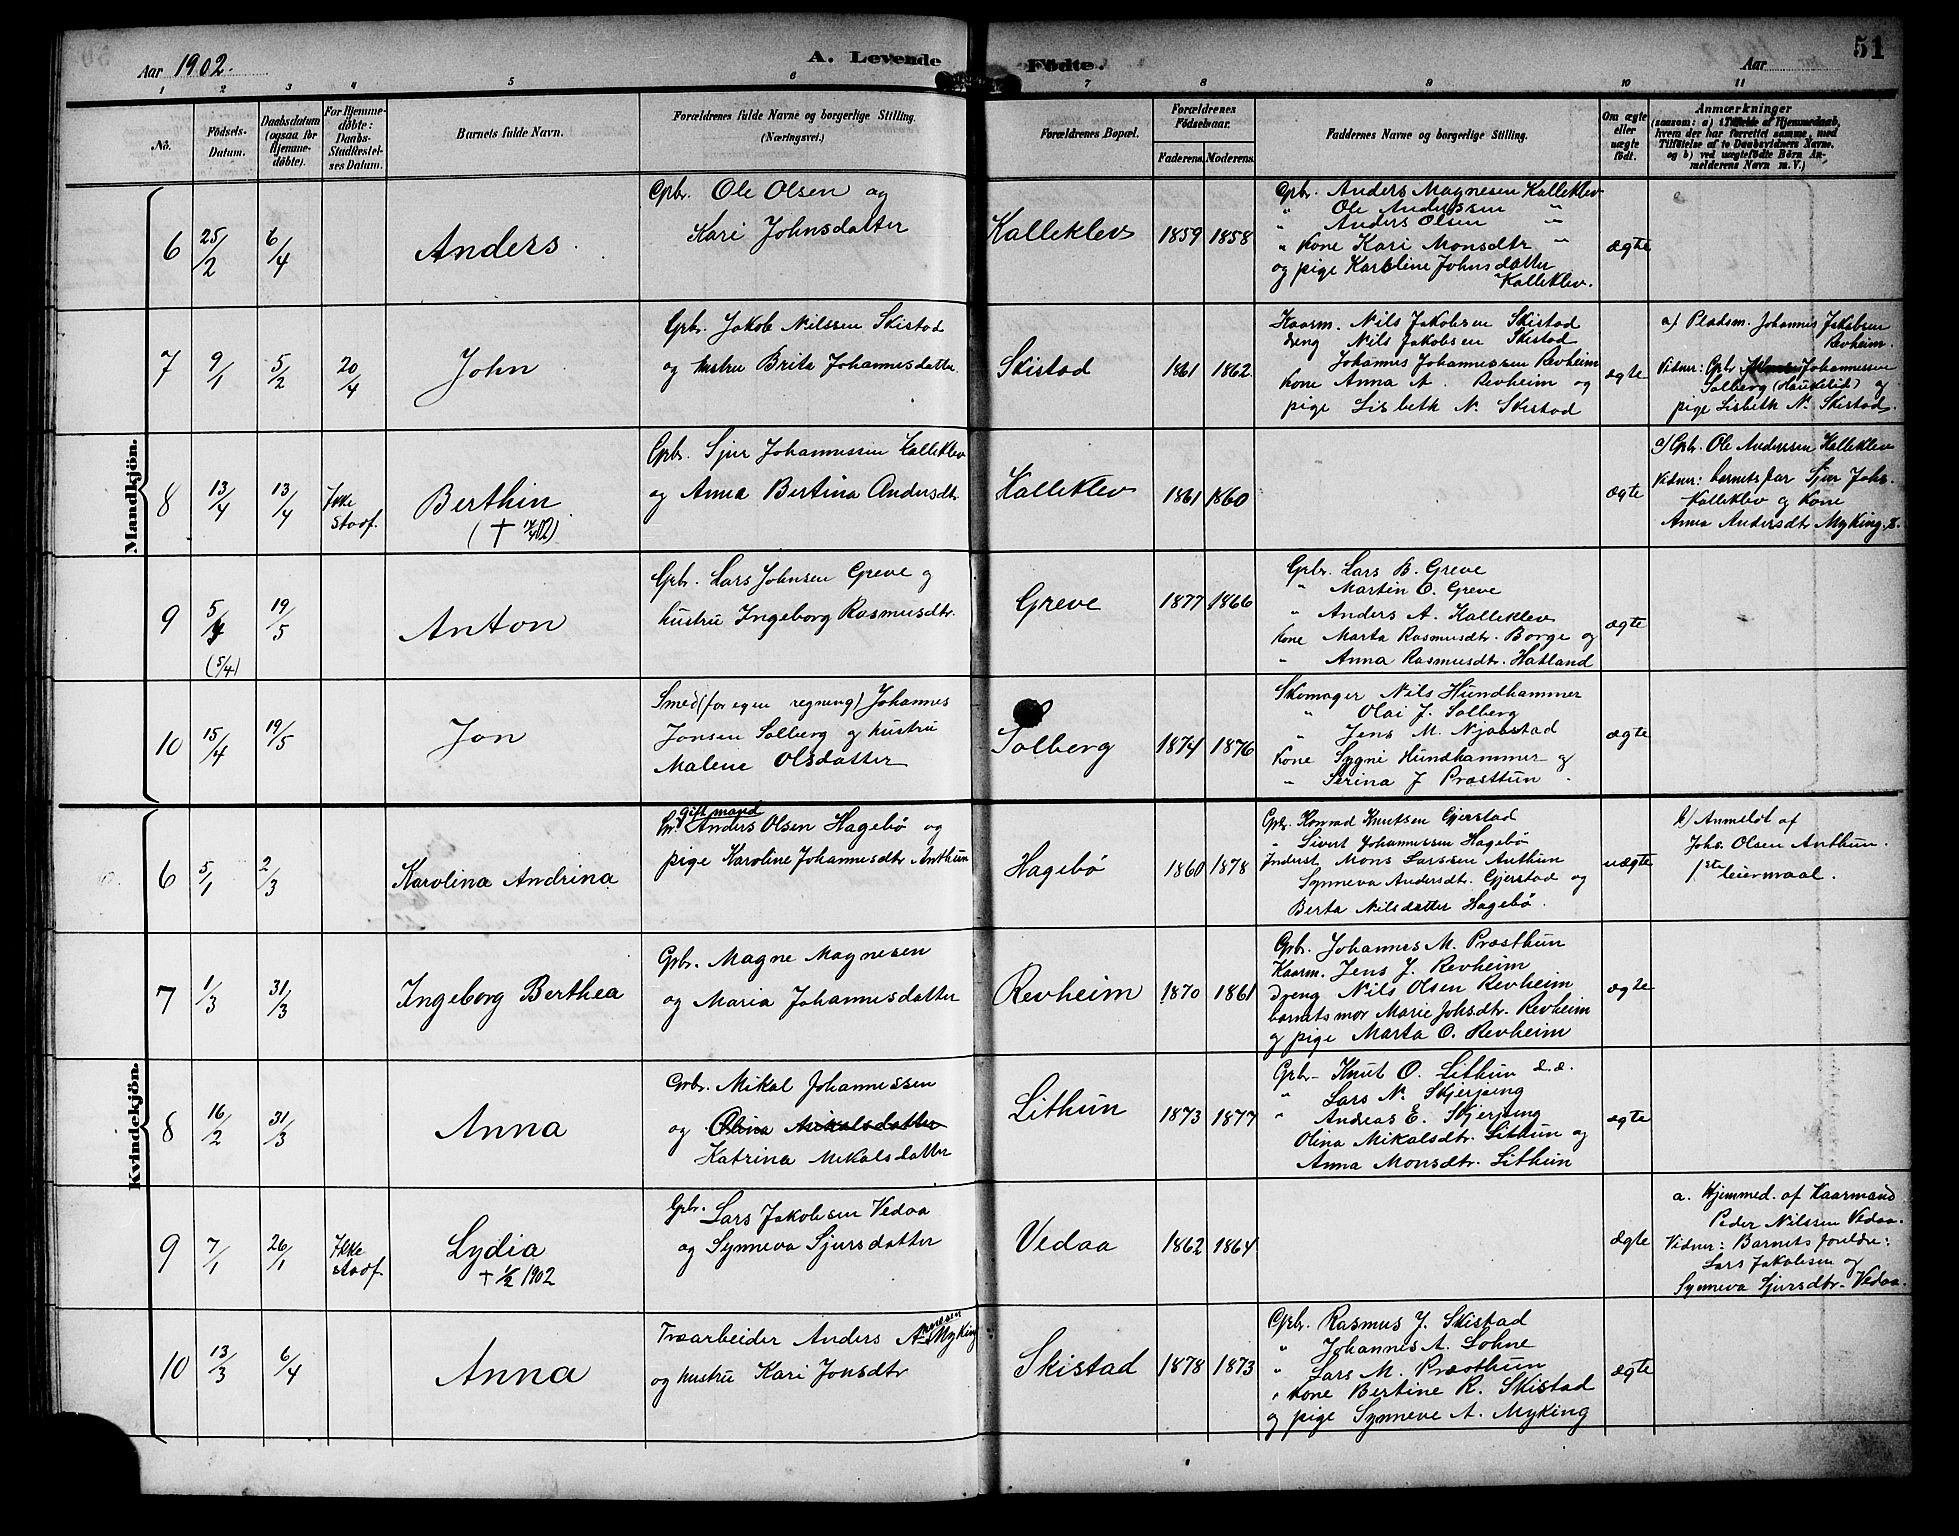 Aar 1902.
A. Levende Fødte.
Aar
51
1 2 3 4 5 6 7 8 9 10 11
No.
Fødsels-Datum.
Daabsdatum (ogsaa for Hjemmedøbte).
For Hjemmedøbte: Daabs Stadfæstelses Datum.
Barnets fulde Navn.
Forældrenes fulde Navne og borgerlige Stilling. (Næringsvei.)
Forældrenes Bopæl.
Forældrenes Fødselsaar.
Faderens. Moderens.
Faddernes Navne og borgerlige Stilling.
Om ægte eller uægte født.
Anmærkninger
(saasom: a) i Tilfælde af Hjemmedaab, hvem der har forrettet samme, med Tilføielse af to Daabsvidners Navne, og b) ved uægtefødte Børn Anmelderens Navn m. V.)
Mandkjön.
6 25/2 6/4 Anders.
Gbr. Ole Olsen og
Kari Johnsdatter
Kalleklev 1859 1858
Gbr. Anders Magnesen Kalleklev
" Ole Anderssen "
" Anders Olsen "
" Kone Kari Monsdtr "
og pige Karoline Johnsdatter
Kalleklev.
ægte
7 9/1 5/2 20/4 John
Gbr. Jakob Nilssen Skistad
og hustru Brita Johannesdatter
Skistad 1861 1862
Kaarm. Nils Jakobsen Skistad
dreng Nils Jakobsen Skistad
Johannes Johannessen Revheim
Kone Anna A. Revheim og
pige Lisbeth N. Skistad
ægte
a/ Pladsm. Johannes Jakobsen
Revheim.
Vidner: Gbr. Johannessen
Solberg (Haukelid) og
pige Lisbeth N. Skistad.
8 13/4 13/4 Ikke
stadf.
Berthin
Gbr. Sjur Johannessen Kalleklev
og Anna Bertina Andersdtr.
Kalleklev 1861 1860
ægte
a/ Gbr. Ole Anderssen Kalleklev
Vidner: barnets far Sjur Johs.
Kalleklev og Kone
Anna Andersdtr Myking.
9 5/4 19/5 Anton
(5/4)
Gbr. Lars Johnsen Greve og
hustru Ingeborg Rasmusdtr.
Greve 1877 1866
Gbr. Lars B. Greve
" Martin O. Greve
" Anders A. Kalleklev
Kone Marta Rasmusdtr. Borge og
" Anna Rasmusdtr. Hatland
ægte
10 15/4 19/5 Jon
Smed (for egen regning) Johannes
Jonsen Solberg og hustru
Malene Olsdatter
Solberg 1874 1876
Skomager Nils Hundhammer
" Olai J. Solberg
" Jens M. Njaastad
Kone Sygni Hundhammer og
" Serina J Præsthun
ægte
Kvindekjön.
6 5/1 2/3 Karolina Andrina
gift mand
Anders Olsen Hagebø og
pige Karoline Johannesdtr Anthun
Hagebø 1860 1878
Gbr. Konrad Knutsen Gjerstad
" Sivert Johannessen Hagebø
Inderst Mons Larssen Anthun
Synneva Andersdtr. Gjerstad og
Berta Nilsdatter Hagebø.
uægte
b/ Anmeldt af
Johs. Olsen Anthun.
1ste leiermaal.
7 1/3 31/3 Ingeborg Berthea
Gbr. Magne Magnesen
og Maria Johannesdatter
Revheim 1870 1861
Gbr. Johannes M. Præsthun
Kaarm. Jens J. Revheim
dreng Nils Olsen Revheim
barnets mor Marie Johsdtr. Revheim
og pige Marta O. Revheim
ægte
8 16/2 31/3 Anna
Gbr. Mikal Johannessen
og Olina Mikalsdatter
Katrina Mikalsdatter
Lithun 1873 1877
Gbr. Knut O. Lithun
" Lars N. Skjerjeng
" Andreas E. Skjerjeng
Olina Mikalsdtr. Lithun og
Anna Monsdtr. Lithun
ægte
9 7/1 26/1 Ikke
stadf.
Lydia
+ 1/2 1902
Gbr. Lars Jakobsen Vedaa
og Synneva Sjursdatter
Vedaa 1862 1864
ægte
a. Hjemmed. af Kaarmand
Peder Nilssen Vedaa.
Vidner: Barnets foreldre:
Lars Jakobsen og
Synneva Sjursdtr. Vedaa.
10 13/3 6/4 Anna
Træarbeider Anders Myking
og hustru Kari Jonsdtr
Skistad 1878 1873
Gbr. Rasmus J. Skistad
" Johannes A. Lohne
" Lars M. Præsthun
" Kone Bertine R. Skistad
og pige Synneve A. Myking
ægte